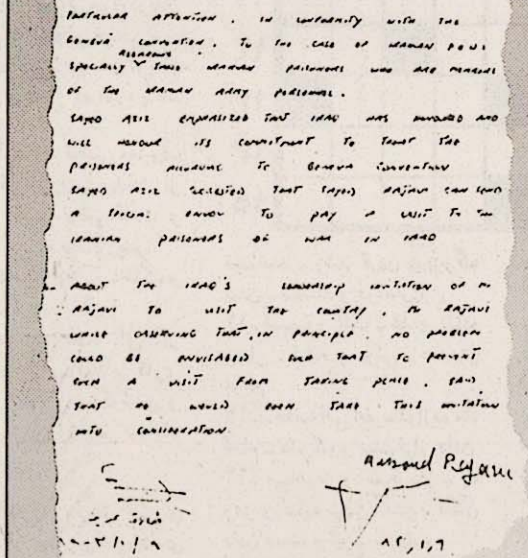 PARTICULAR ATTENTION, IN CONFORMITY WITH THE
GENEVA CONVENTION, TO THE CASE OF IRANIAN P.O.W.S
REGARDING
SPECIALLY THOSE IRANIAN PRISONERS WHO ARE MEMBERS
OF THE IRANIAN ARMY PERSONNEL.
SAYED AZIZ EMPHASIZED THAT IRAQ HAS HONOURED AND
WILL HONOUR ITS COMMITMENT TO TREAT THE
PRISONERS ACCORDING TO GENEVA CONVENTION
SAYED AZIZ THAT SAYED RAJAVI CAN SEND
A SPECIAL ENVOY TO PAY A VISIT TO THE
IRANIAN PRISONERS OF WAR IN IRAQ
ABOUT THE IRAQ'S LEADERSHIP INVITATION OF MR
RAJAVI TO VISIT THE COUNTRY, MR RAJAVI
WHILE OBSERVING THAT, IN PRINCIPLE, NO PROBLEM
COULD BE ENVISAGED SUCH THAT TO PREVENT
SUCH A VISIT FROM TAKING PLACE, SAID
THAT HE WOULD TAKE THIS INVITATION
INTO CONSIDERATION.
Massoud Rajavi